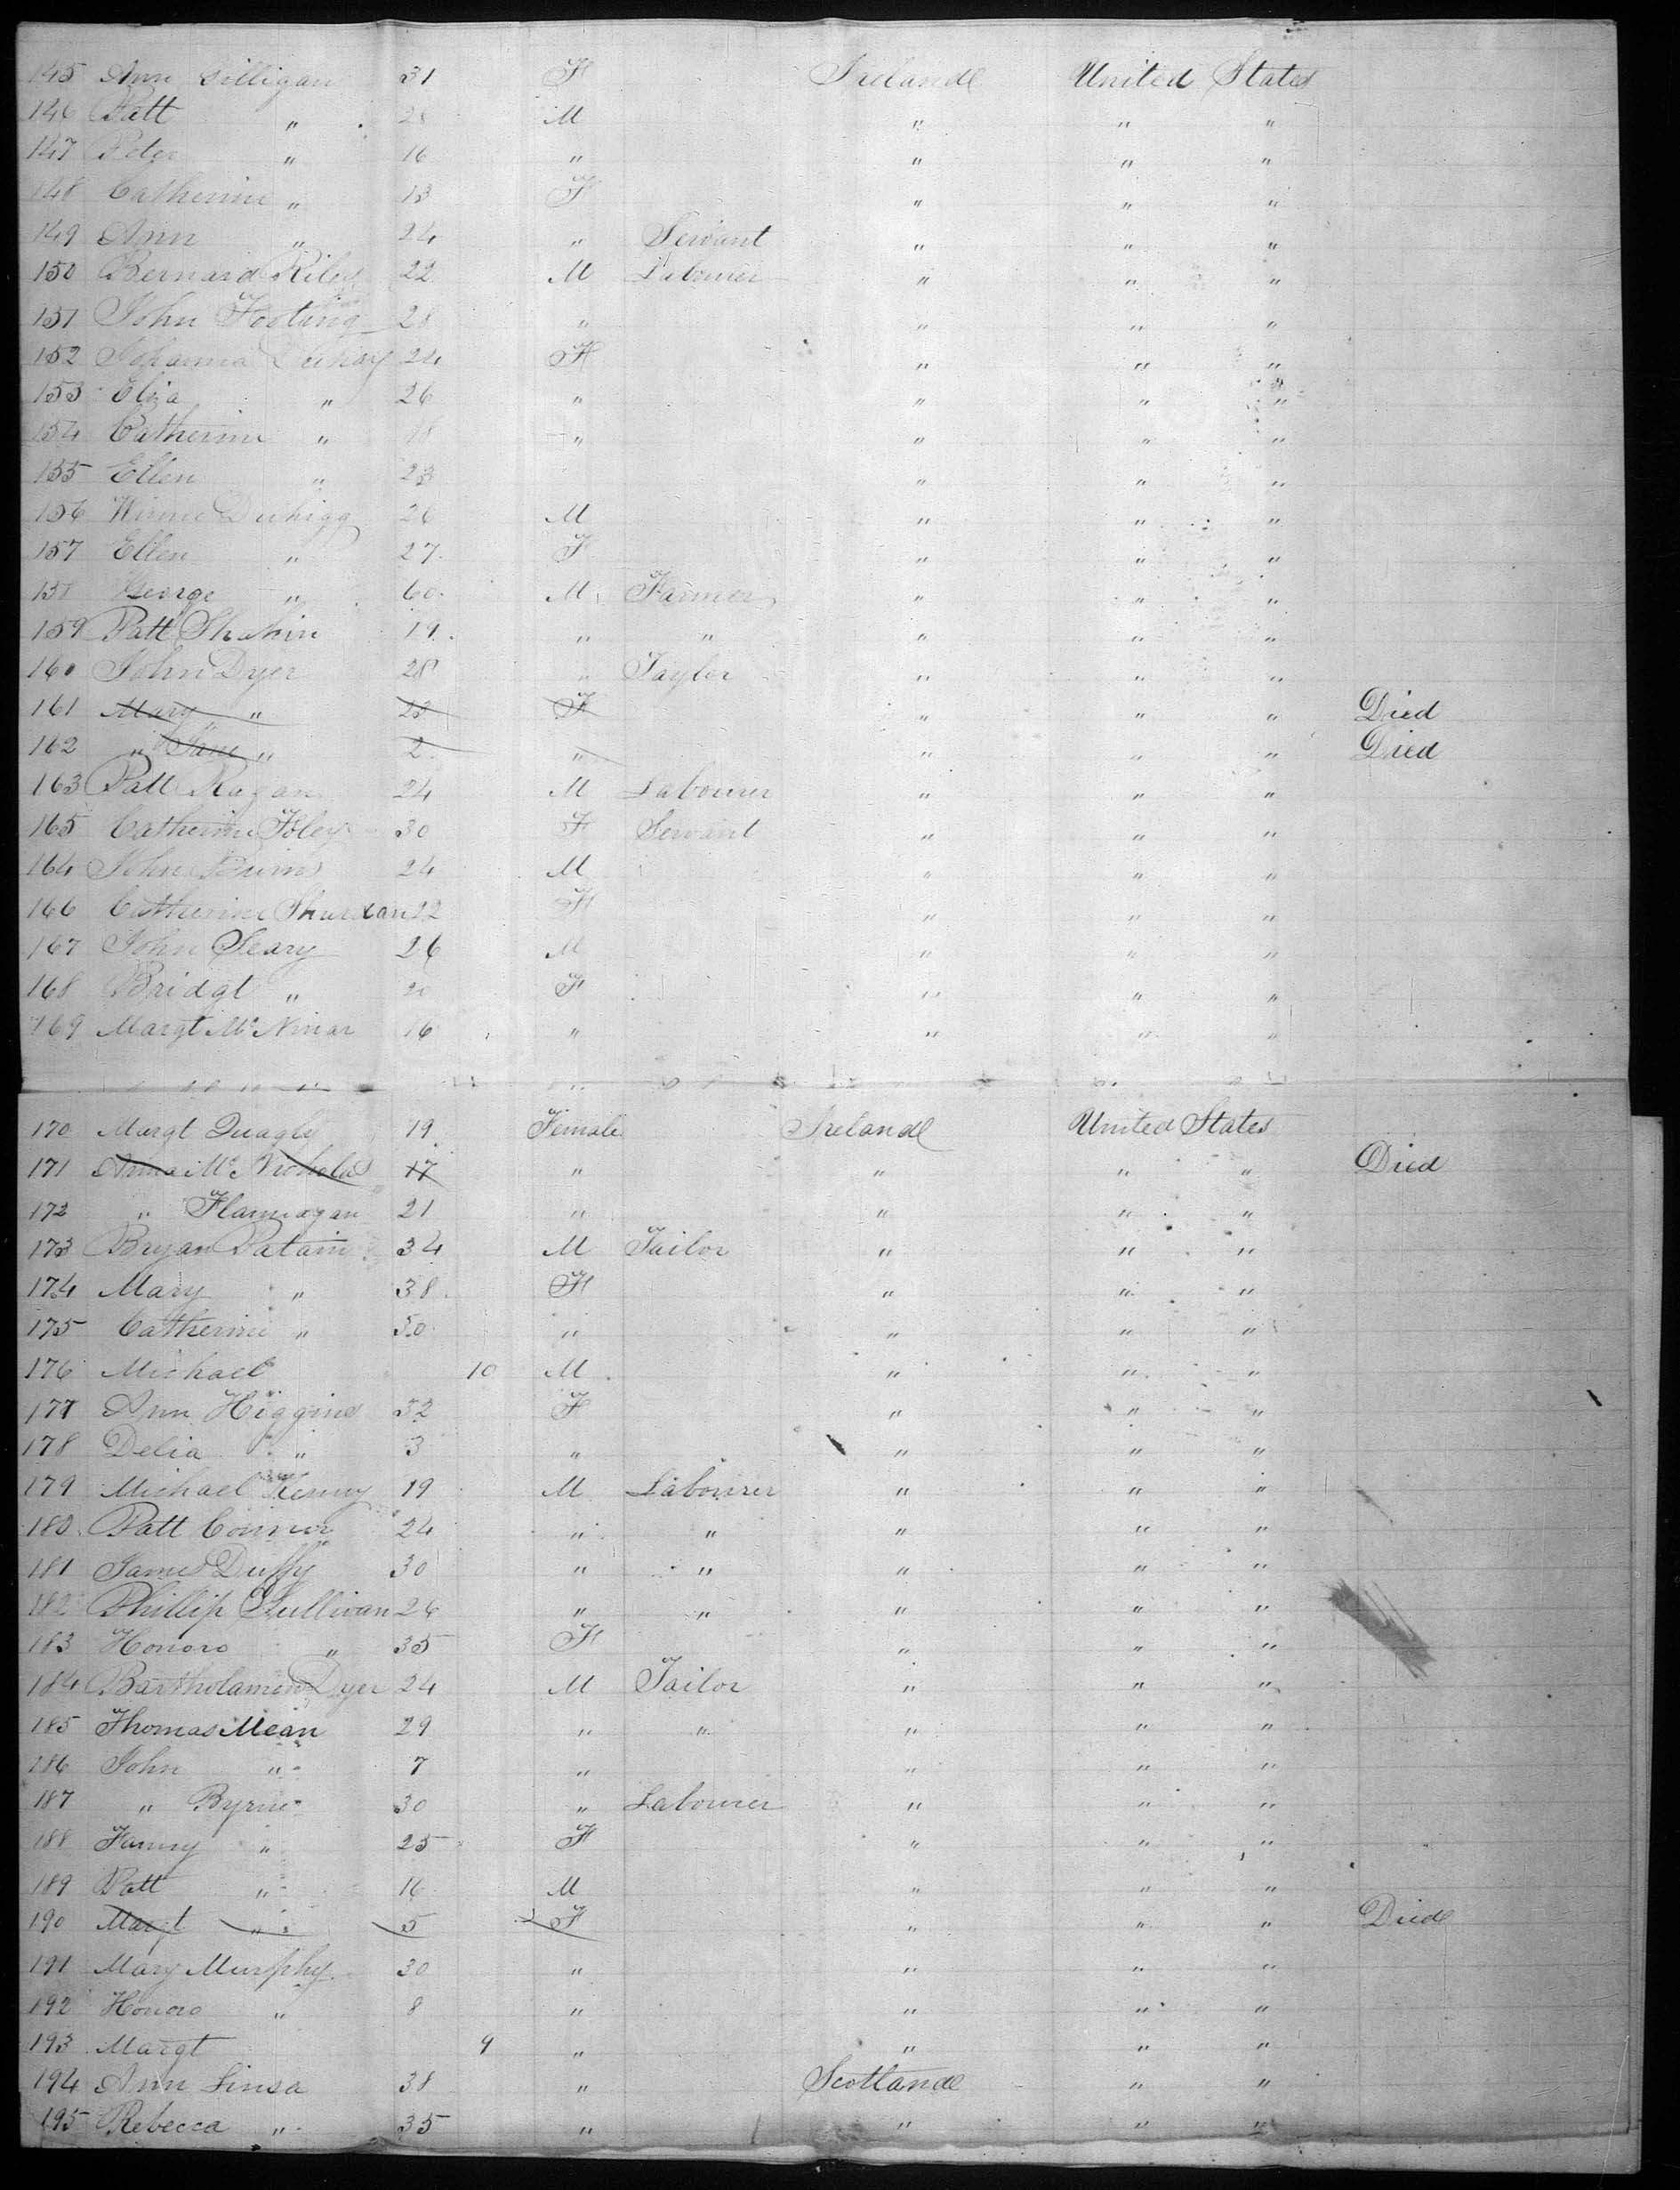 145 Ann Gilligan 31 F Ireland United States
146 Patt " 28 M " " "
147 Peter " 16 " " " "
148 Catherine " 13 F " " "
149 Ann " 24 " Servant " " "
150 Bernard Riley 22 M Labourer " " "
151 John 28 " " " "
152 Johanna 24 F " " "
153 Eliza " 26 " " " "
154 Catherine " 18 " " " "
155 Ellen " 23 " " "
156 Duhigg 26 M " " "
157 Ellen " 27 F " " "
158 George " 60 M Farmer " " "
159 Patt 19 " " " " "
160 John Dyer 28 " Taylor " " "
161 Mary " 23 F " " " Died
162 " Jane " 2 " " " " Died
163 Patt Ragan 24 M Labourer " " "
165 Catherine Foley 30 F Servant " " "
164 John Burns 24 M " " "
166 Catherine 22 F " " "
167 John Seary 26 M " " "
168 Bridgt " 20 F " " "
169 Margt 16 " " " "
170 Margt Quagly 19 Female Ireland United States
171 Anna McNicholas 17 " " " " Died
172 " Flannagan 21 " " " "
173 Bryan 34 M Tailor " " "
174 Mary " 38 F " " "
175 Catherine " 50 " " " "
176 Michael 10 M " " "
177 Ann Higgins 32 F " " "
178 Delia " 3 " " " "
179 Michael Kenny 19 M Labourer " " "
180 Patt Connor 24 " " " " "
181 James Duffy 30 " " " " "
182 Phillip Sullivan 26 " " " " "
183 Honoro " 35 F " " "
184 Bartholamew Dyer 24 M Tailor " " "
185 Thomas Mean 29 " " " " "
186 John " 7 " " " "
187 " Byrne 30 " Labourer " " "
188 Fanny " 25 F " " "
189 Patt " 16 M " " "
190 Margt " 5 F " " " Died
191 Mary Murphy 30 " " " "
192 Honoro " 8 " " " "
193 Margt 9 " " " "
194 Ann Linsa 38 " Scotland " "
195 Rebecca " 35 " " " "